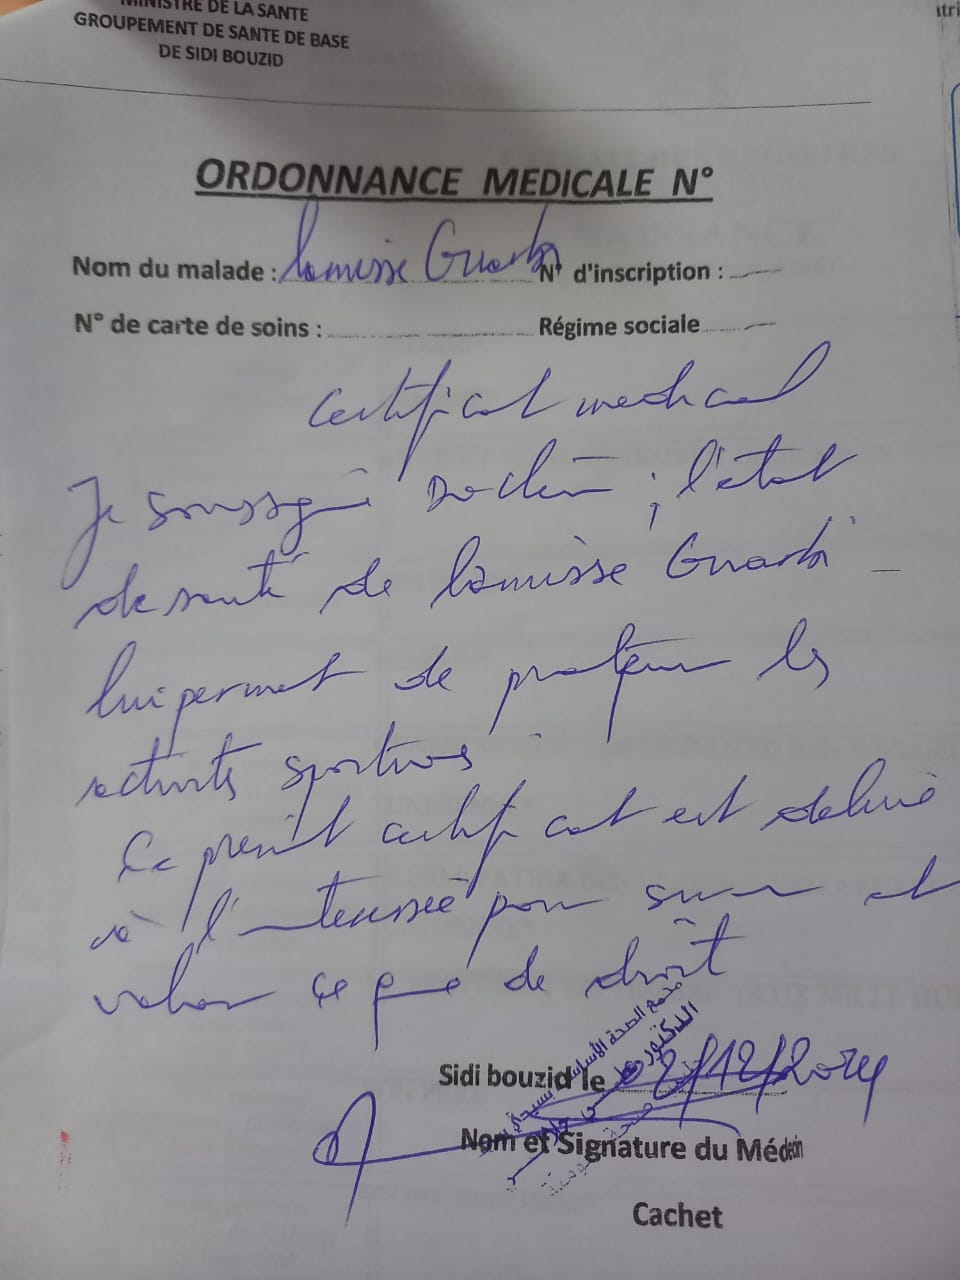 MINISTRE DE LA SANTE
GROUPEMENT DE SANTE DE BASE
DE SIDI BOUZID
ORDONNANCE MEDICALE N°
Nom du malade : Lamisse N° d'inscription :
N° de carte de soins : Régime sociale
Certificat medical
Je soussigné Docteur ; l'état
de santé de Lamisse
lui permet de pratiquer les
activités sportives
Ce présent certificat est délivré
à l'intéressée pour servir et
valoir ce que de droit
مجمع الصحة الأساسية بسيدي
الدكتور
Sidi bouzid le 2/12/2024
Nom et Signature du Médecin
Cachet